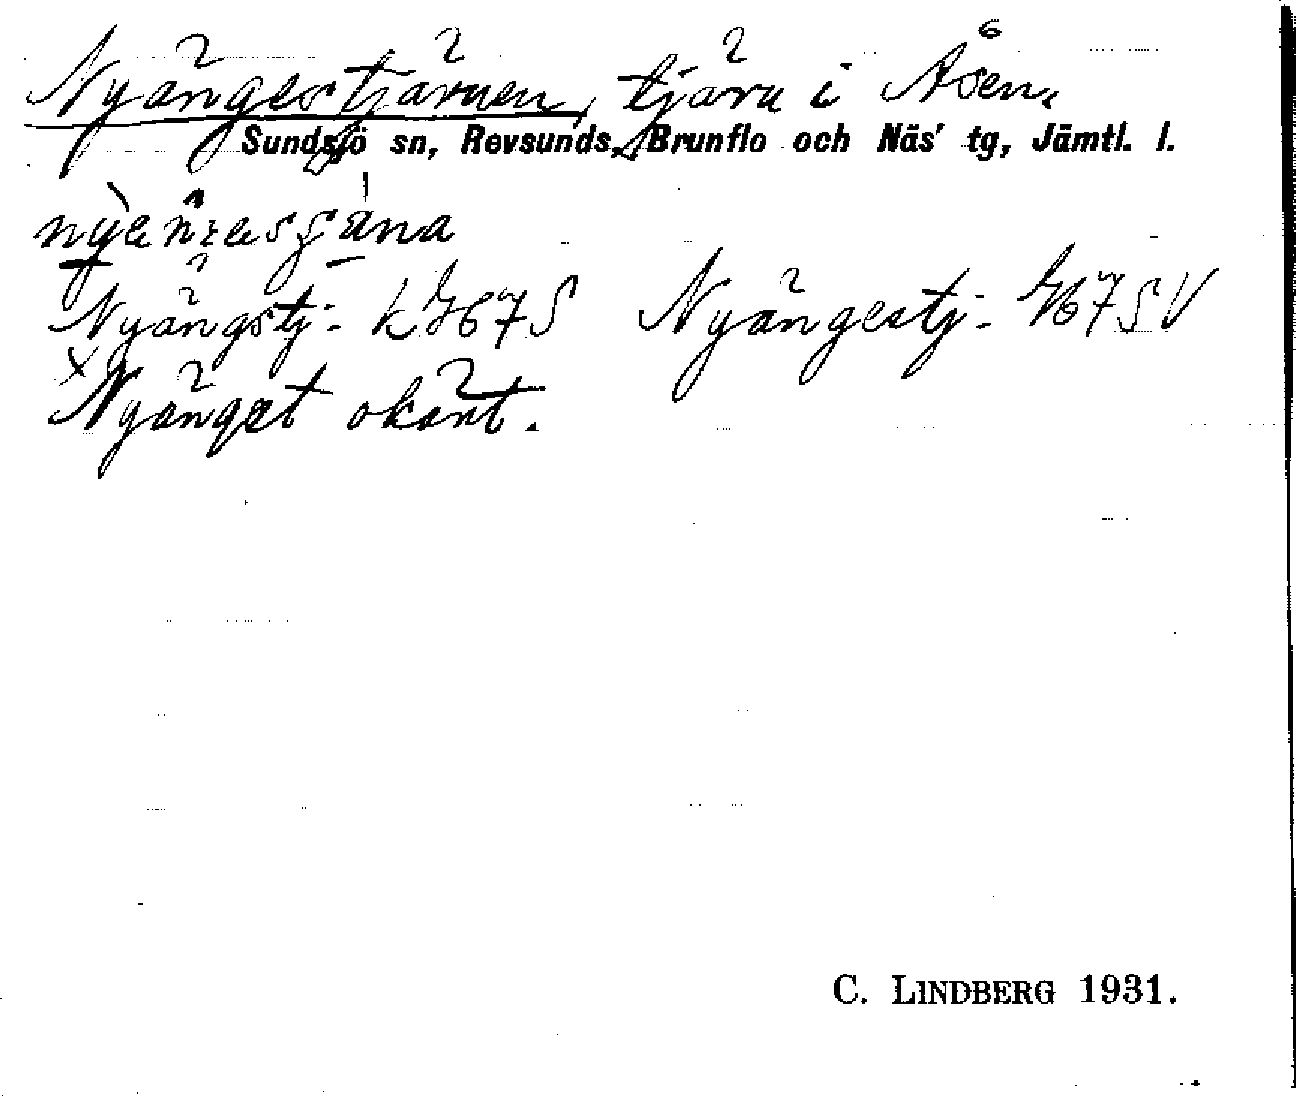 Nyängestjärnen, tjärn i Åsen,
Sundsjö sn, Revsunds, Brunflo och Näs' tg, Jämtl. l.
Nyängstj. k Gb 7 S Nyängestj. Gb 7 SV
x Nyänget okänt.
C. LINDBERG 1931.